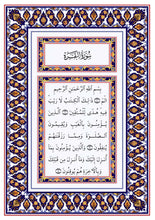 سُورَةُ البَقَرَةِ
بِسْمِ ٱللَّهِ ٱلرَّحْمَٰنِ ٱلرَّحِيمِ
الٓمٓ ۝١ ذَٰلِكَ ٱلْكِتَٰبُ لَا رَيْبَ
فِيهِ هُدًى لِّلْمُتَّقِينَ ۝٢ ٱلَّذِينَ
يُؤْمِنُونَ بِٱلْغَيْبِ وَيُقِيمُونَ
ٱلصَّلَوٰةَ وَمِمَّا رَزَقْنَٰهُمْ
يُنفِقُونَ ۝٣ وَٱلَّذِينَ يُؤْمِنُونَ بِمَآ
أُنزِلَ إِلَيْكَ وَمَآ أُنزِلَ مِن قَبْلِكَ
وَبِٱلْءَاخِرَةِ هُمْ يُوقِنُونَ ۝٤